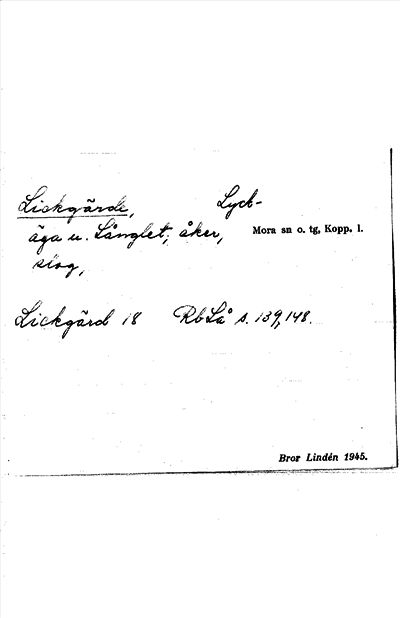 Lickgärde, Lyck-
äga u. Långlet; åker, Mora sn o. tg, Kopp. l.
slog,
Lickgärd 18 RbLå s. 139, 148.
Bror Lindén 1945.